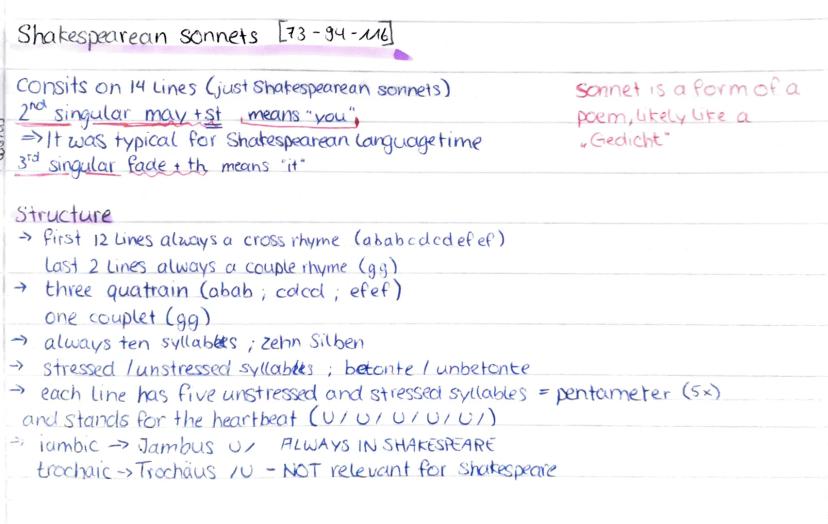 Shakespearean sonnets [73-94-116]
consits on 14 Lines (just Shakespearean sonnets)
2nd singular may + st means "you"
=> It was typical for Shakespearean languagetime
3rd singular fade + th means "it"
sonnet is a form of a
poem, likely like a
„Gedicht"
Structure
→ first 12 Lines always a cross rhyme (ababcdcdefef)
last 2 Lines always a couple rhyme (gg)
→ three quatrain (abab ; cdcd ; efef)
one couplet (gg)
→ always ten syllables ; zehn Silben
→ stressed / unstressed syllables ; betonte / unbetonte
→ each line has five unstressed and stressed syllables = pentameter (5x)
and stands for the heartbeat (U/ U/ U/ U/ U/)
→ iambic → Jambus U/ ALWAYS IN SHAKESPEARE
trochaic → Trochäus /U - NOT relevant for Shakespeare